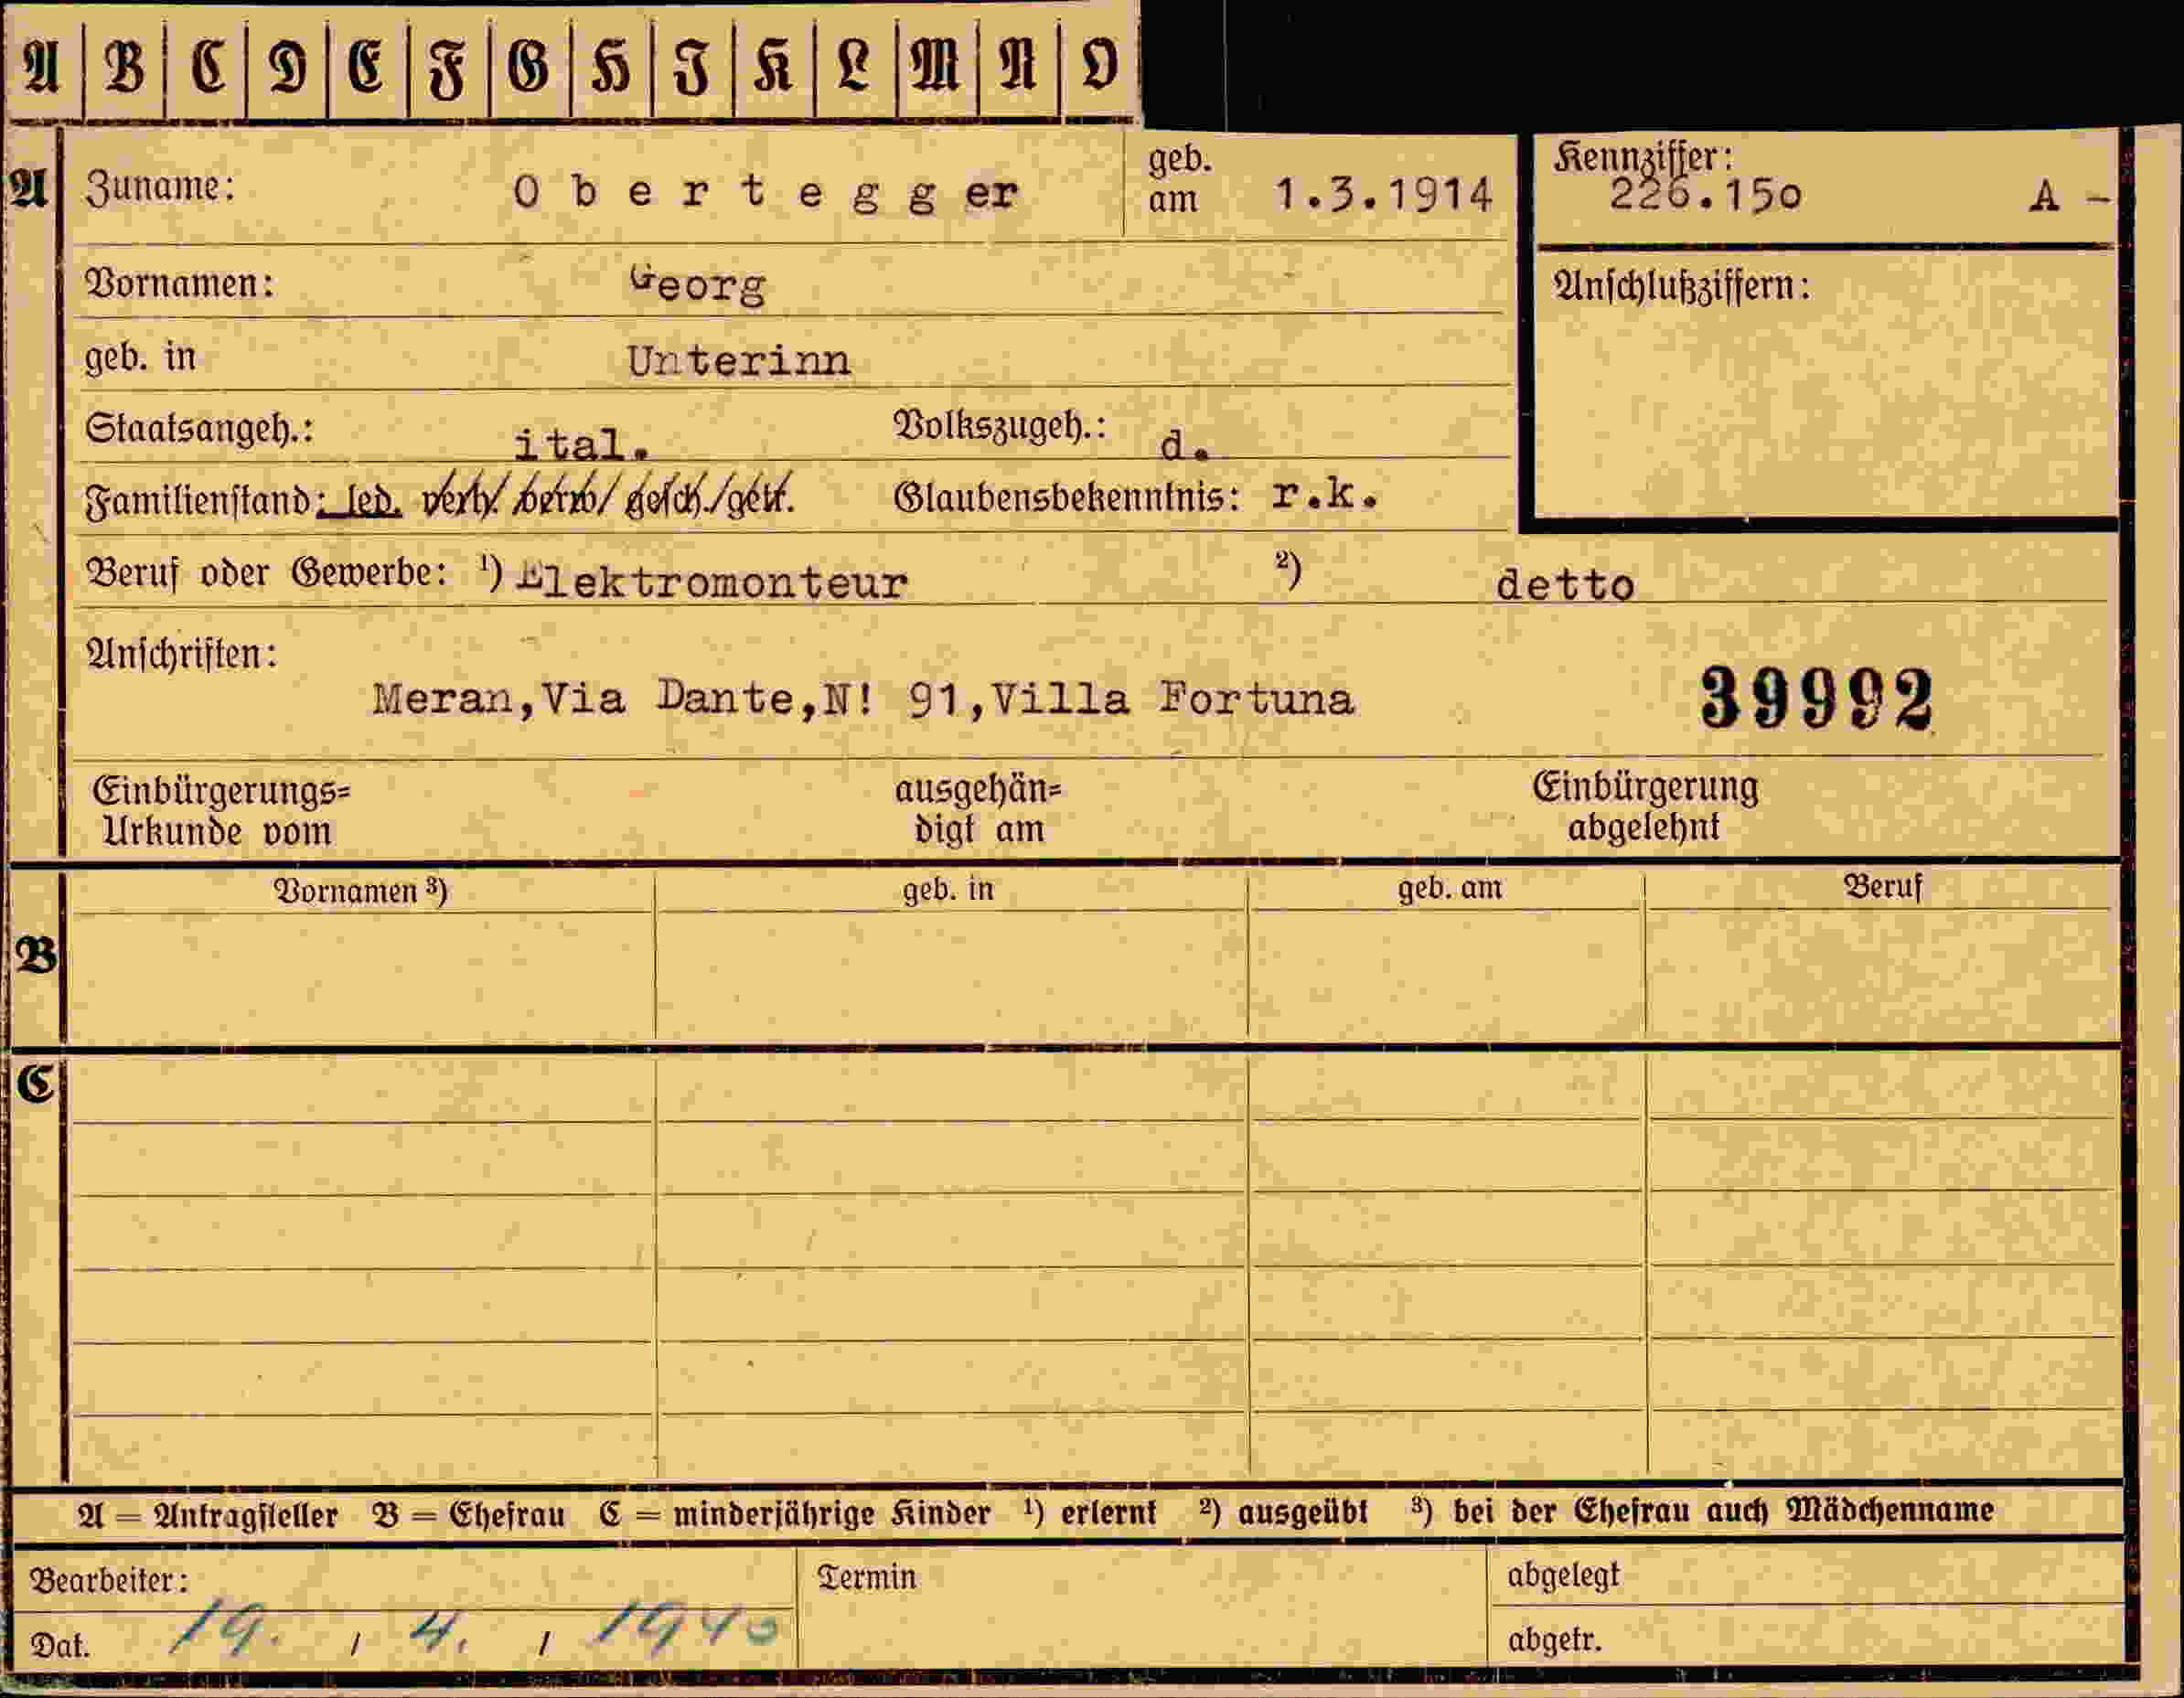 A B C D E F G H I K L M N O
A Zuname: O b e r t e g g er geb. am 1.3.1914 Kennziffer: 226.15o A -
Vornamen: Georg Anschlußziffern:
geb. in Unterinn
Staatsangeh.: ital. Volkszugeh.: d.
Familienstand: led. verh./ verw/ gesch./getr. Glaubensbekenntnis: r.k.
Beruf oder Gewerbe: ¹) Elektromonteur ²) detto
Anschriften:
Meran,Via Dante,N! 91,Villa Fortuna 39992
Einbürgerungs= ausgehän= Einbürgerung
Urkunde vom digt am abgelehnt
Vornamen ³) geb. in geb. am Beruf
B
C
A = Antragsteller B = Ehefrau C = minderjährige Kinder ¹) erlernt ²) ausgeübt ³) bei der Ehefrau auch Mädchenname
Bearbeiter: Termin abgelegt
Dat. 19. / 4. / 1940 abgetr.